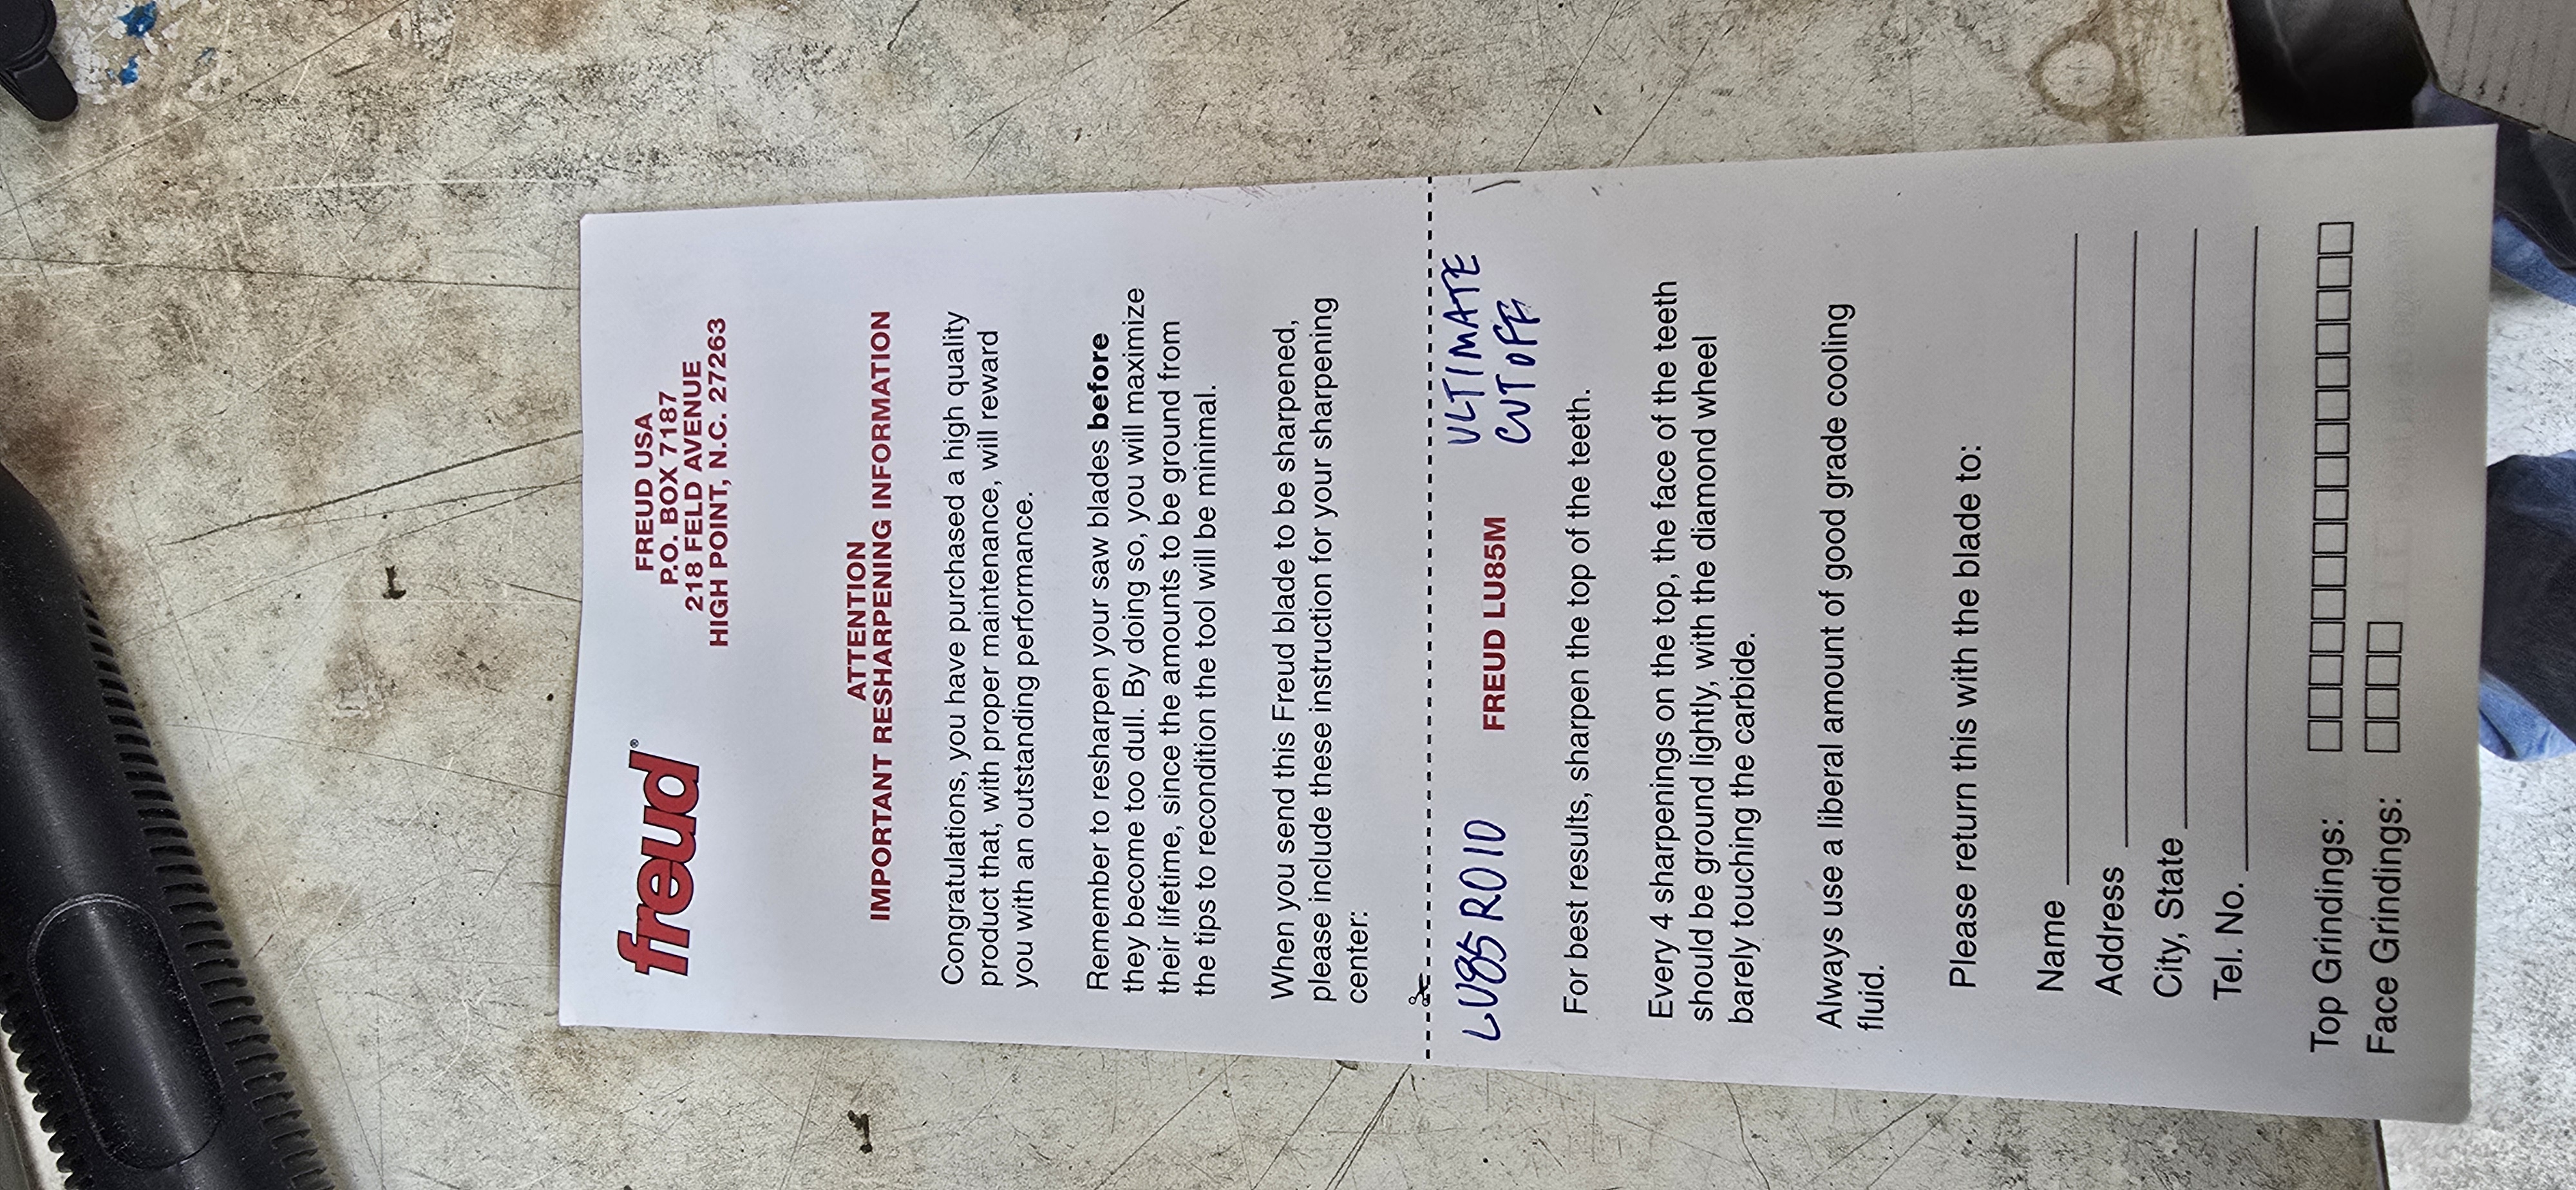 freud®
FREUD USA
P.O. BOX 7187
218 FELD AVENUE
HIGH POINT, N.C. 27263
ATTENTION
IMPORTANT RESHARPENING INFORMATION
Congratulations, you have purchased a high quality
product that, with proper maintenance, will reward
you with an outstanding performance.
Remember to resharpen your saw blades before
they become too dull. By doing so, you will maximize
their lifetime, since the amounts to be ground from
the tips to recondition the tool will be minimal.
When you send this Freud blade to be sharpened,
please include these instruction for your sharpening
center:
LU85R010 FREUD LU85M ULTIMATE
CUTOFF
For best results, sharpen the top of the teeth.
Every 4 sharpenings on the top, the face of the teeth
should be ground lightly, with the diamond wheel
barely touching the carbide.
Always use a liberal amount of good grade cooling
fluid.
Please return this with the blade to:
Name
Address
City, State
Tel. No.
Top Grindings:
Face Grindings: